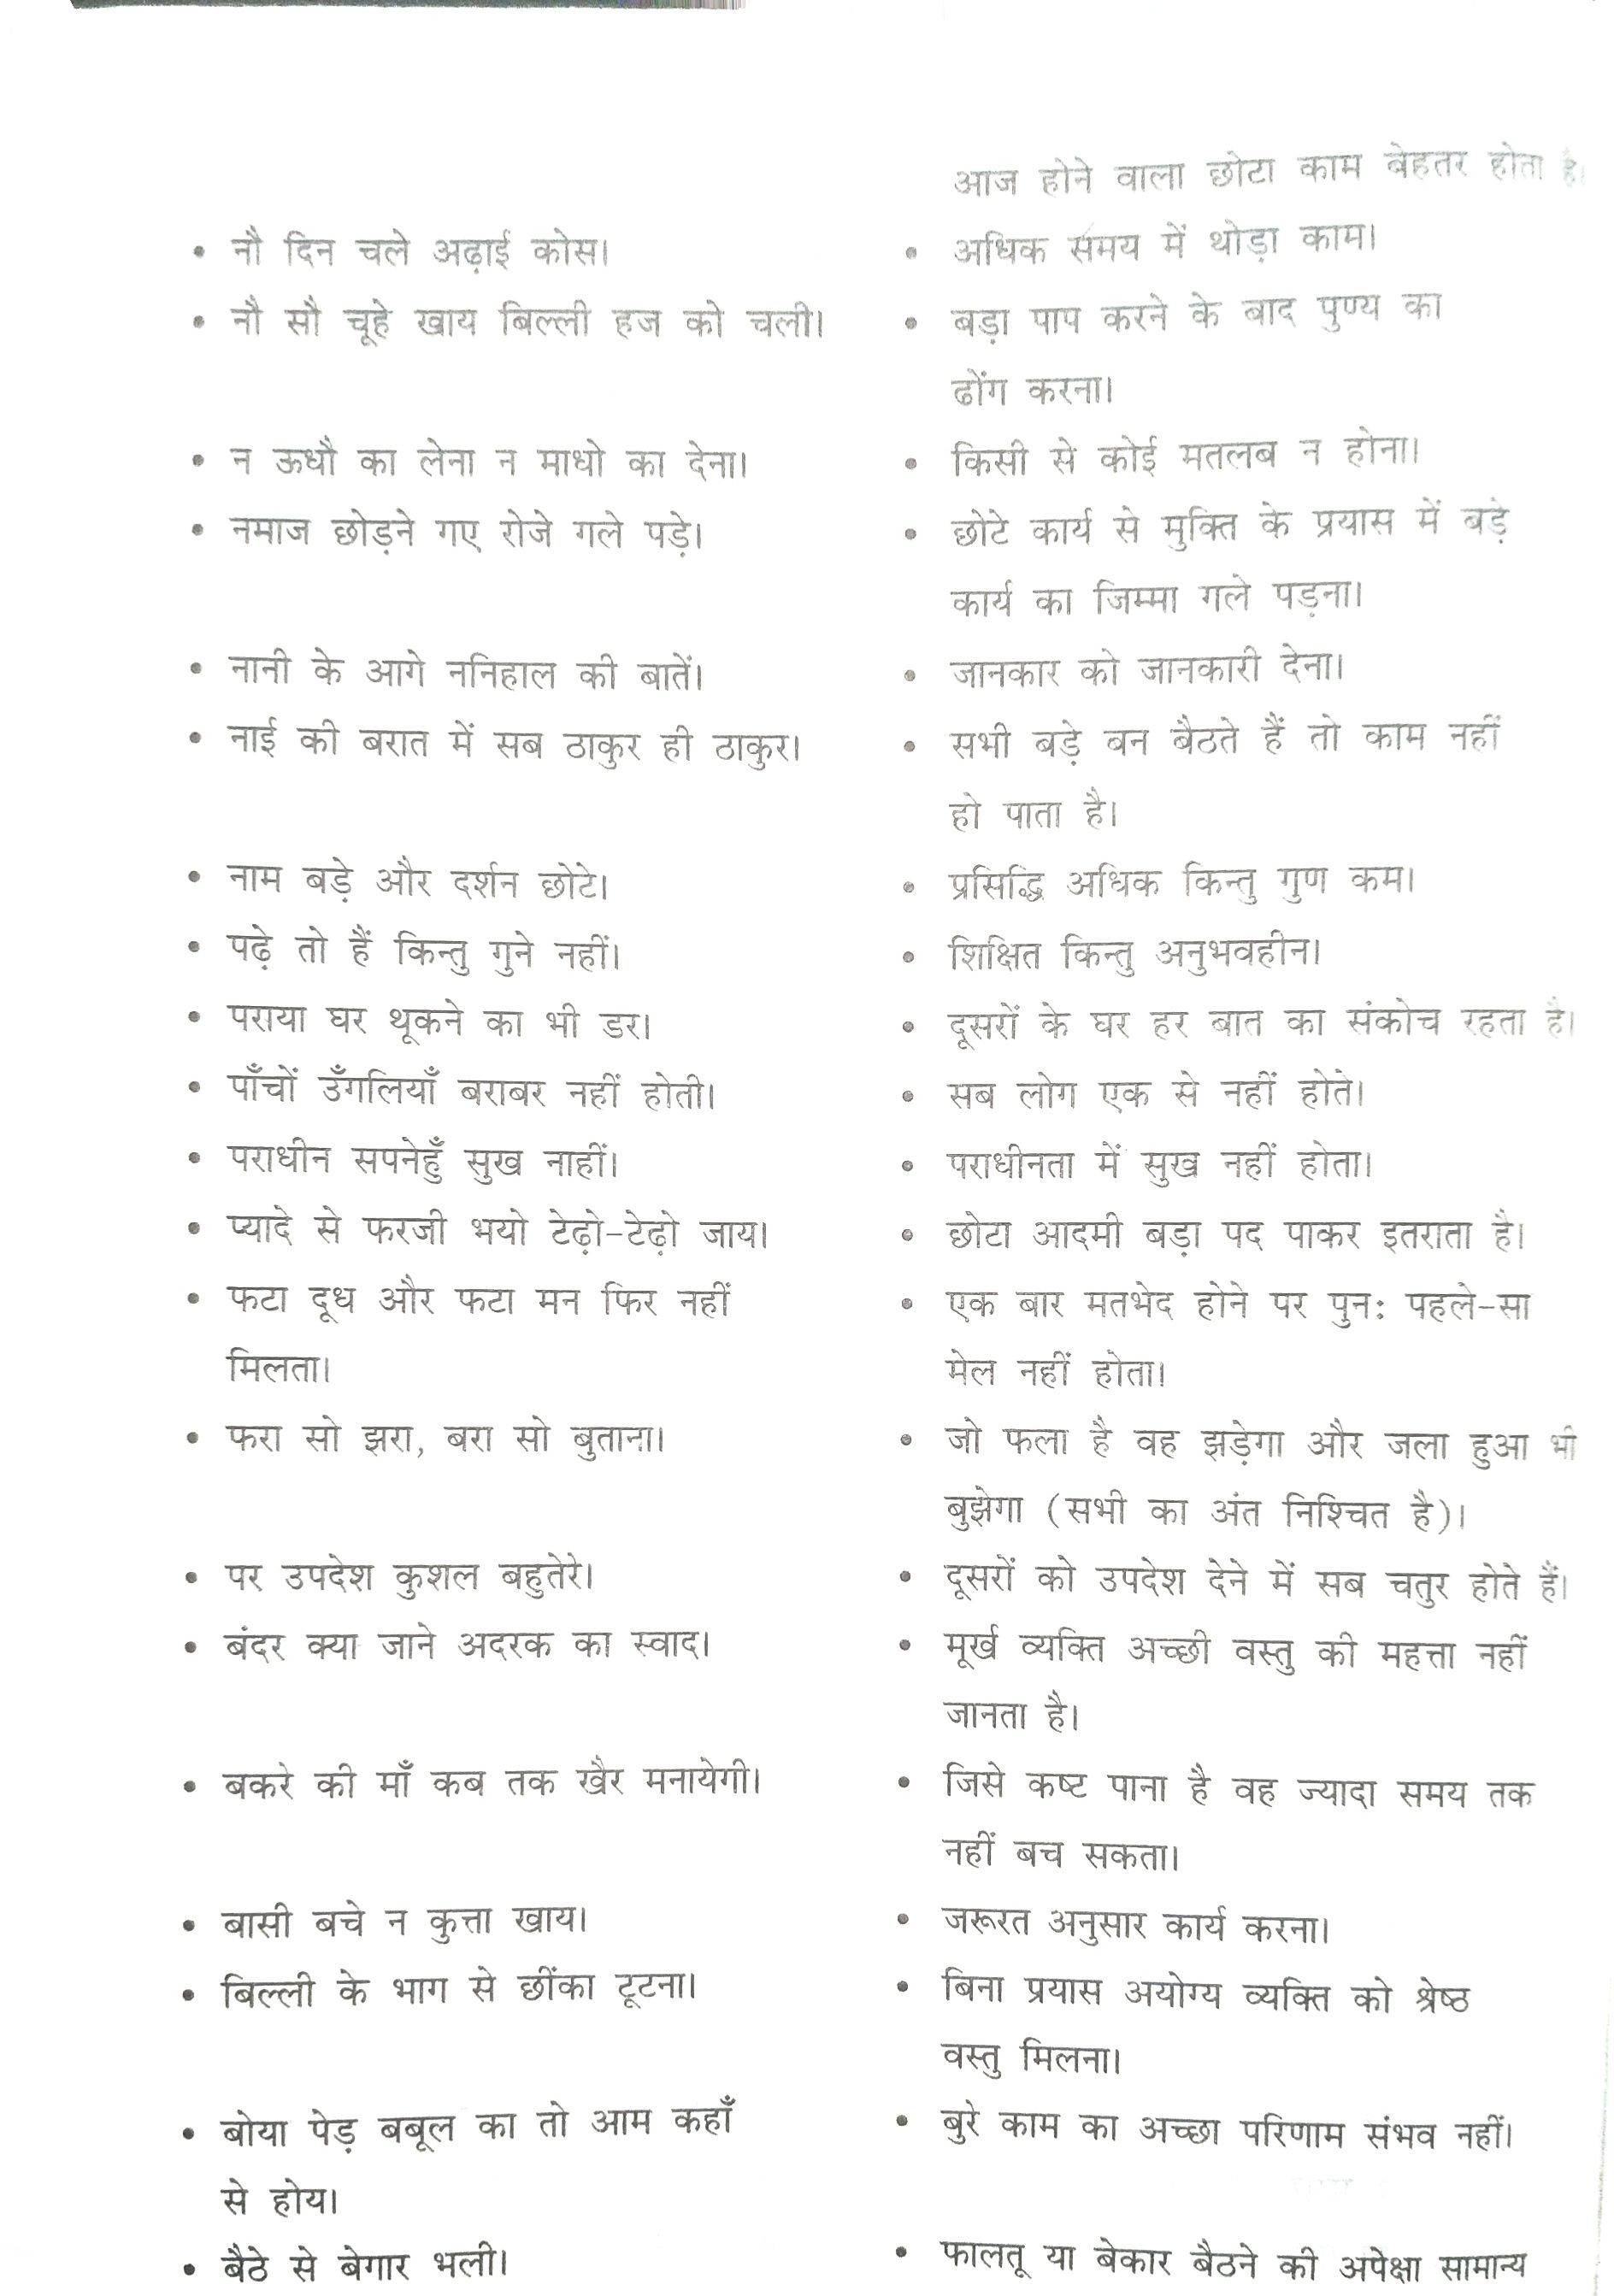 आज होने वाला छोटा काम बेहतर होता है।
• नौ दिन चले अढ़ाई कोस।
• अधिक समय में थोड़ा काम।
• नौ सौ चूहे खाय बिल्ली हज को चली।
• बड़ा पाप करने के बाद पुण्य का
ढोंग करना।
• न ऊधौ का लेना न माधो का देना।
• किसी से कोई मतलब न होना।
• नमाज छोड़ने गए रोजे गले पड़े।
• छोटे कार्य से मुक्ति के प्रयास में बड़े
कार्य का जिम्मा गले पड़ना।
• नानी के आगे ननिहाल की बातें।
• जानकार को जानकारी देना।
• नाई की बरात में सब ठाकुर ही ठाकुर।
• सभी बड़े बन बैठते हैं तो काम नहीं
हो पाता है।
• नाम बड़े और दर्शन छोटे।
• प्रसिद्धि अधिक किन्तु गुण कम।
• पढ़े तो हैं किन्तु गुने नहीं।
• शिक्षित किन्तु अनुभवहीन।
• पराया घर थूकने का भी डर।
• दूसरों के घर हर बात का संकोच रहता है।
• पाँचों उँगलियाँ बराबर नहीं होती।
• सब लोग एक से नहीं होते।
• पराधीन सपनेहुँ सुख नाहीं।
• पराधीनता में सुख नहीं होता।
• प्यादे से फरजी भयो टेढ़ो-टेढ़ो जाय।
• छोटा आदमी बड़ा पद पाकर इतराता है।
• फटा दूध और फटा मन फिर नहीं
मिलता।
• एक बार मतभेद होने पर पुनः पहले-सा
मेल नहीं होता।
• फरा सो झरा, बरा सो बुताना।
• जो फला है वह झड़ेगा और जला हुआ भी
बुझेगा (सभी का अंत निश्चित है)।
• पर उपदेश कुशल बहुतेरे।
• दूसरों को उपदेश देने में सब चतुर होते हैं।
• बंदर क्या जाने अदरक का स्वाद।
• मूर्ख व्यक्ति अच्छी वस्तु की महत्ता नहीं
जानता है।
• बकरे की माँ कब तक खैर मनायेगी।
• जिसे कष्ट पाना है वह ज्यादा समय तक
नहीं बच सकता।
• बासी बचे न कुत्ता खाय।
• जरूरत अनुसार कार्य करना।
• बिल्ली के भाग से छींका टूटना।
• बिना प्रयास अयोग्य व्यक्ति को श्रेष्ठ
वस्तु मिलना।
• बोया पेड़ बबूल का तो आम कहाँ
से होय।
• बुरे काम का अच्छा परिणाम संभव नहीं।
• बैठे से बेगार भली।
• फालतू या बेकार बैठने की अपेक्षा सामान्य